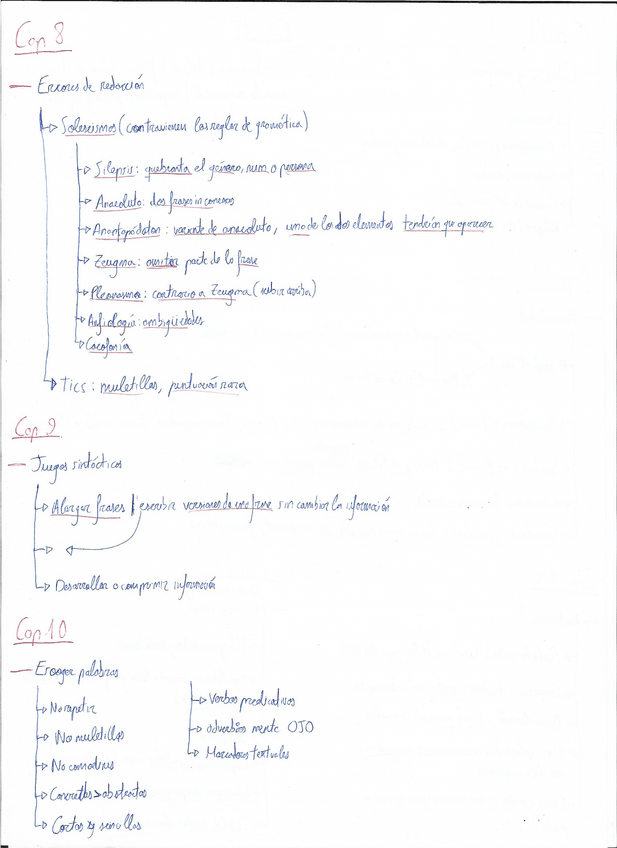 Cap 8
— Errores de redacción
Solescismos (contravienen las reglas de gramática)
Silepsis: quebranta el género, num o persona
Anacoluto: dos frases inconexas
Anantapódaton: variante de anacoluto, uno de los dos elementos tendrán que aparecer
Zeugma: omitir parte de la frase
Pleonasmo: contrario a Zeugma (subir arriba)
Anfiología: ambigüedades
Cacofonía
Tics: muletillas, puntuación rara
Cap 9
— Juegos sintácticos
Alargar frases / escribir versiones de una frase sin cambiar la información
Desarrollar o comprimir información
Cap 10
— Escoger palabras
No repetir
No muletillas
No comodines
Concretas > abstractas
Cortas y sencillas
Verbos predicativos
adverbios mente OJO
Marcadores textuales